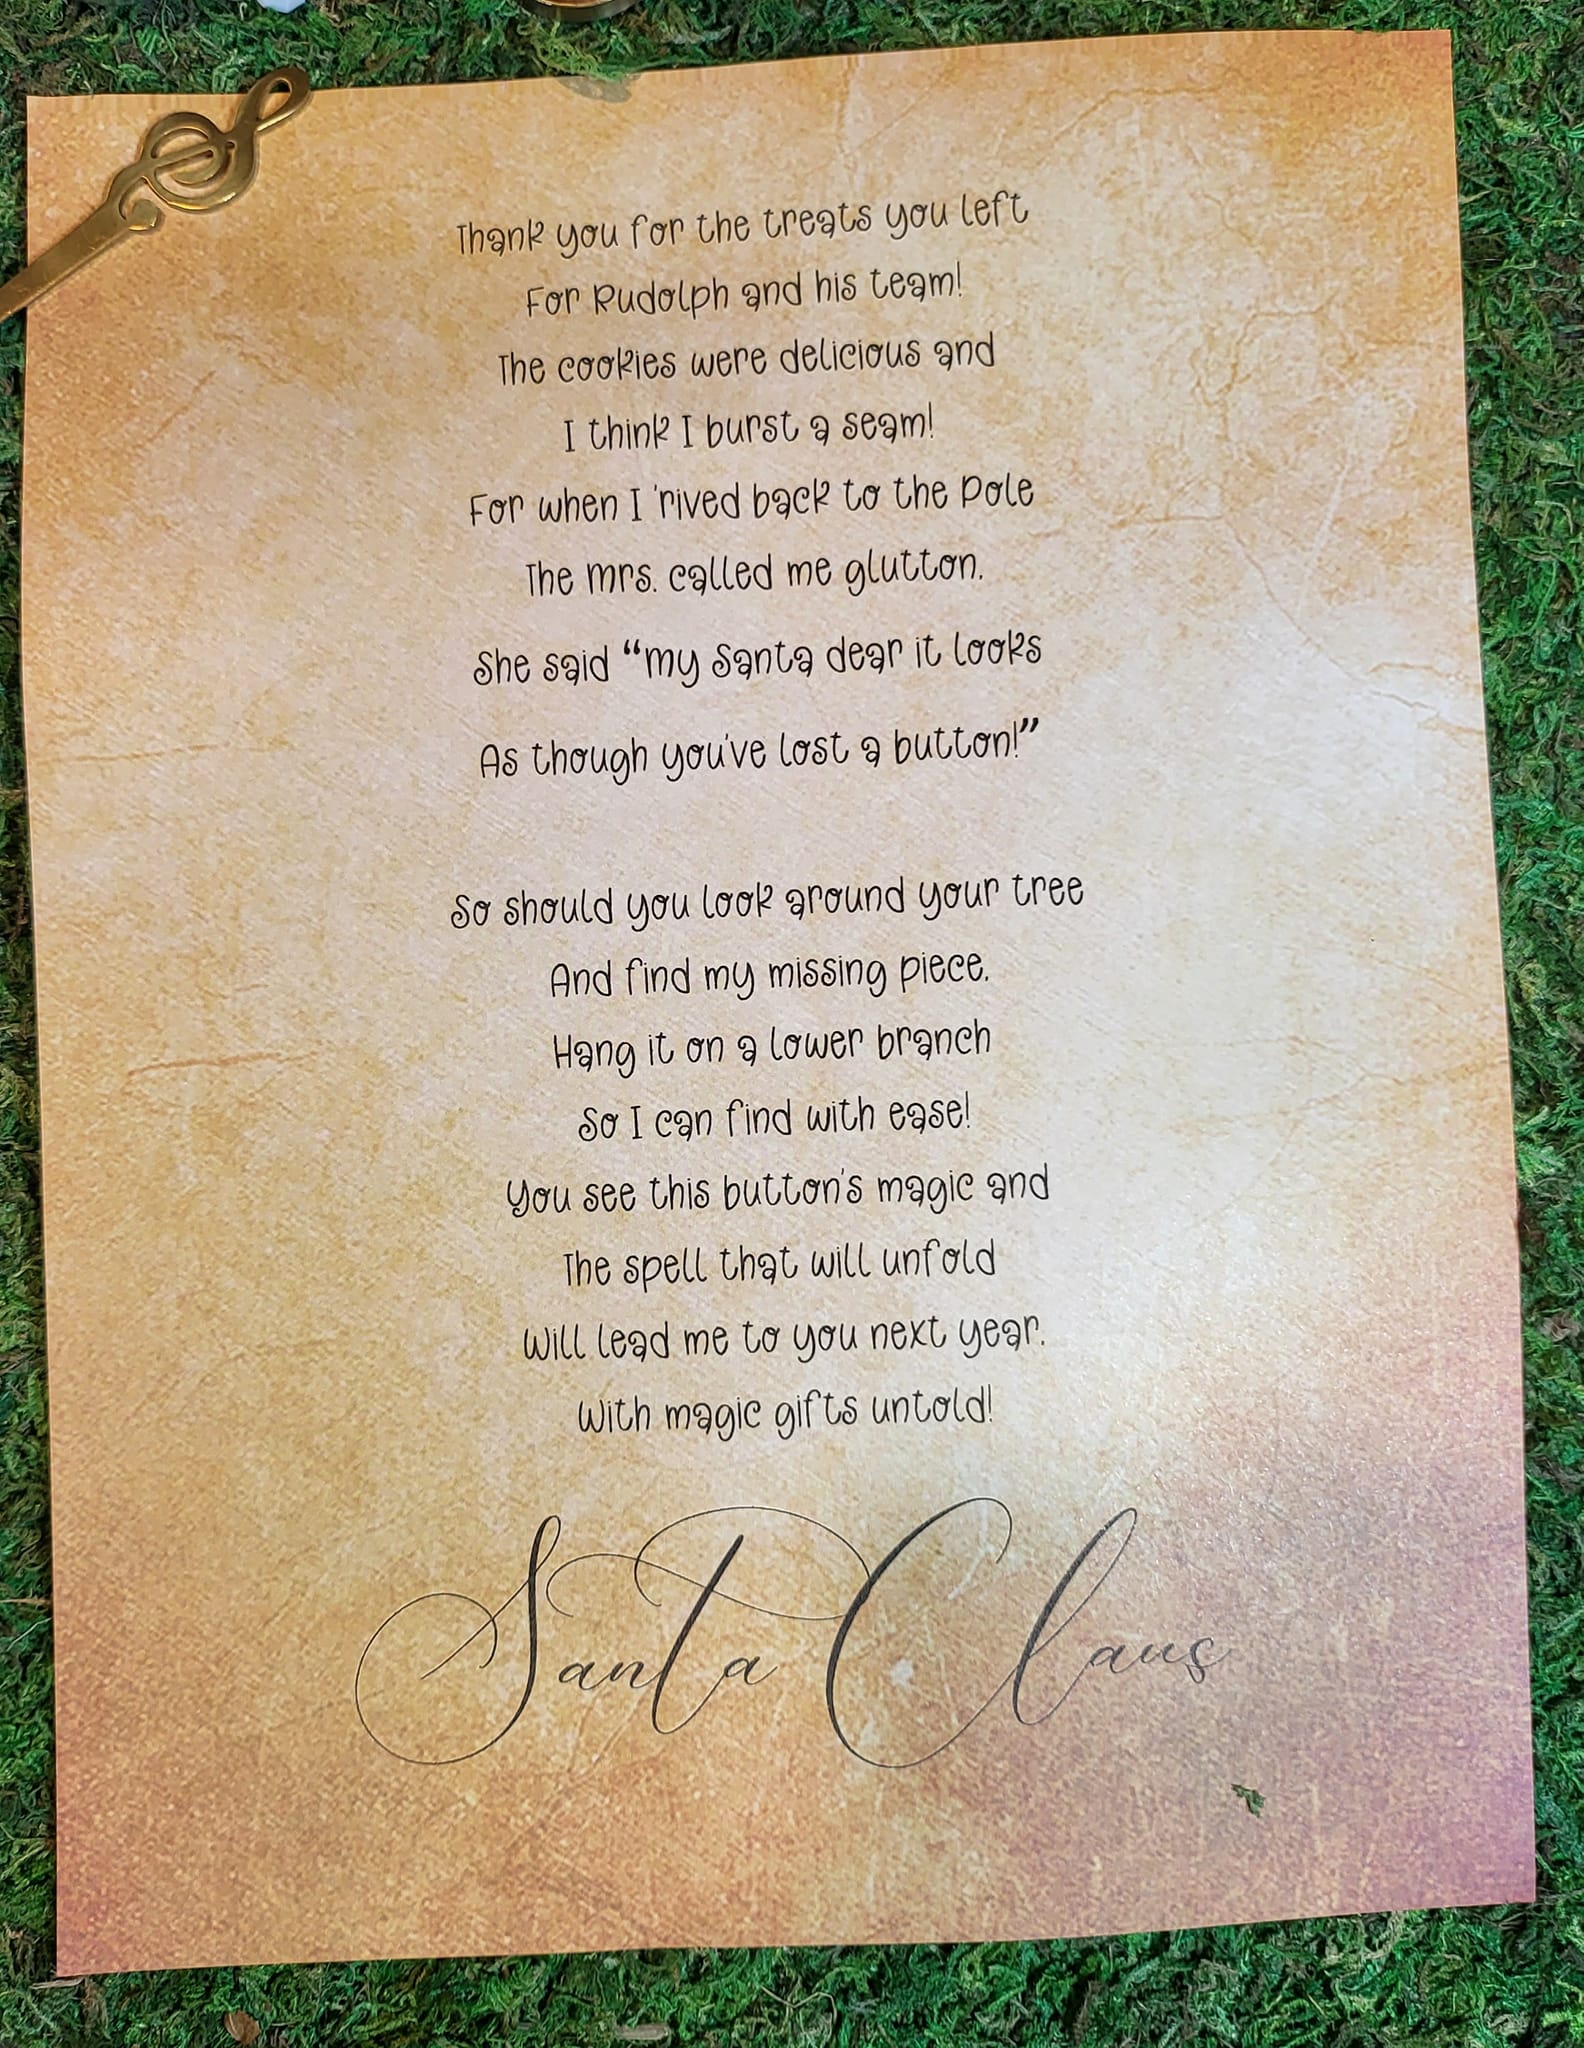 Thank you for the treats you left
For Rudolph and his team!
The cookies were delicious and
I think I burst a seam!
For when I 'rived back to the Pole
The Mrs. called me glutton.
She said “My Santa dear it looks
As though you've lost a button!”
So should you look around your tree
And find my missing piece.
Hang it on a lower branch
So I can find with ease!
You see this button's magic and
The spell that will unfold
Will lead me to you next year.
With magic gifts untold!
Santa Claus